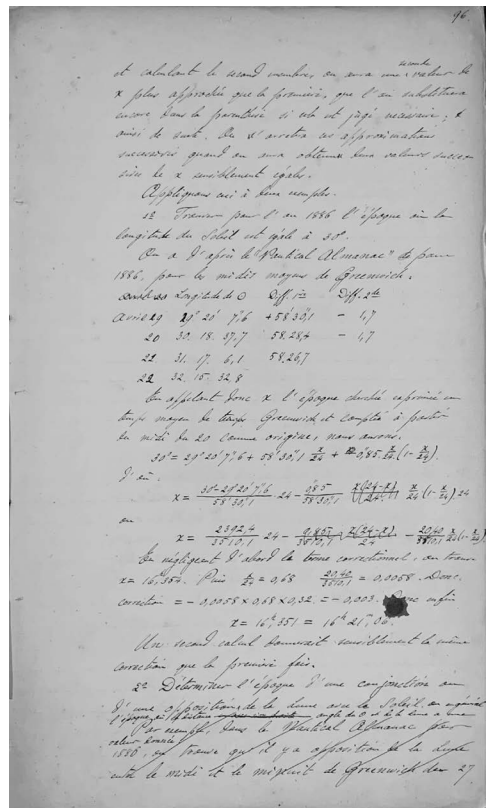 96
seconde
et calculant le second membre, on aura une valeur de
x plus approchée que la première, que l'on substituera
encore dans la parenthèse si cela est jugé nécessaire, &
ainsi de suite. On s'arrêtera aux approximations
successives quand on aura obtenu deux valeurs succes
sives de x sensiblement égales.
Appliquons ceci à deux exemples.
1º Trouver pour l'an 1886 l'époque où la
longitude du Soleil est égale à 30º.
On a d'après le "Nautical Almanac" de
1886, pour les midis moyens de Greenwich.
Longitude de ☉ Diff. 1re Diff. 2de
Avril 19 29º 20' 7",6 + 58'30",1 - 1,7
20 30. 18. 37,7 58.28,4 - 1,7
21 31. 17. 6,1 58.26,7
22 32. 15. 32,8
En appelant donc x l'époque cherchée exprimée en
temps moyen de Greenwich, et comptée à partir
du midi du 20 comme origine, nous aurons.
30º = 29º20'7",6 + 58'30",1 x/24 + 0",85 x/24 (1 - x/24).
d'où
x = 30º-29º20'7",6 / 58'30",1 24 - 0,85 / 58'30",1 x/24 (1 - x/24) 24
ou
x = 2392,4 / 3510,1 24 - 20,40 / 3510,1 x/24 (1 - x/24)
En négligeant d'abord le terme correctionnel, on trouve
x = 16,354. Puis x/24 = 0,68 20,40 / 3510,1 = 0,0058. Donc
correction = - 0,0058 × 0,68 × 0,32 = - 0,003. Donc enfin
x = 16h,351 = 16h 21m,06.
Un second calcul donnerait sensiblement la même
correction que la première fois.
2º Déterminer l'époque d'une conjonction ou
d'une opposition de la lune avec le Soleil, ou en général
valeur donnée
Par exemple, dans le Nautical Almanac pour
1886, on trouve qu'il y a opposition de la lune
entre le midi et le minuit de Greenwich du 27